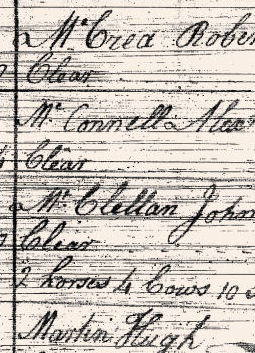 Mc Crea Rober
Clear
Mc Connell Alex
Clear
Mc Clellan John
Clear
2 horses 4 Cows 10 s
Martin Hugh